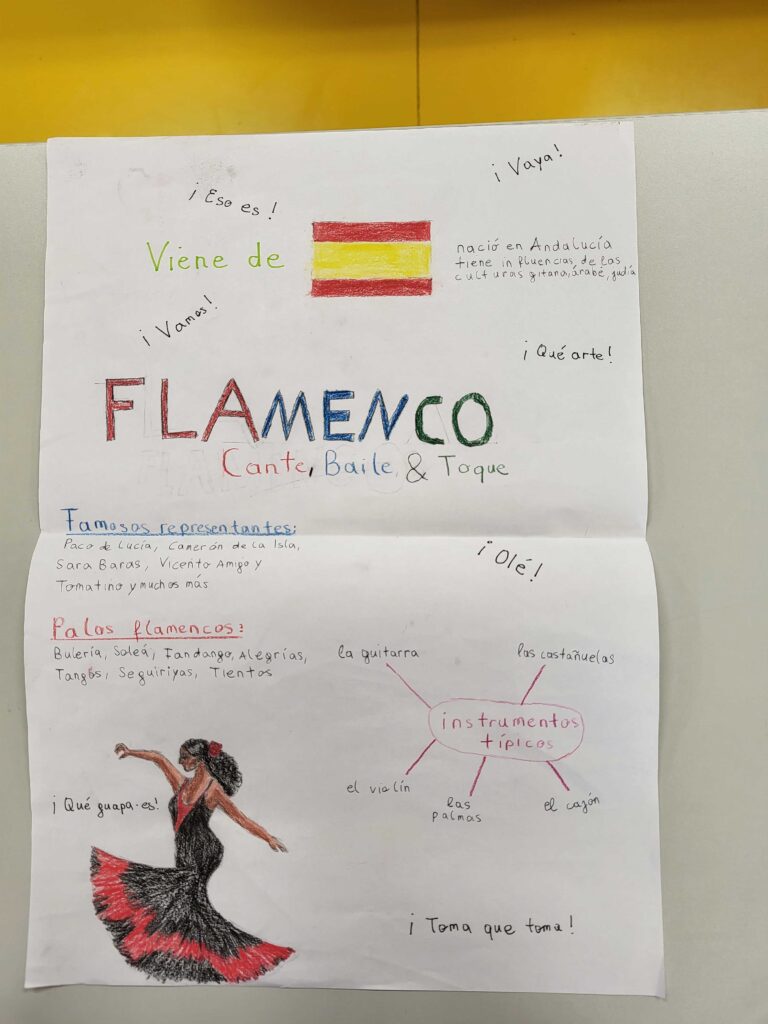 ¡Vaya!
¡Eso es!
Viene de
nació en Andalucía
tiene influencias de las
culturas gitana, árabe, judía
¡Vamos!
¡Qué arte!
FLAMENCO
Cante, Baile & Toque
Famosos representantes:
Paco de Lucía, Camerón de la Isla,
Sara Baras, Vicento Amigo y
Tomatino y muchos más
¡Olé!
Palos flamencos:
Bulería, Soleá, Fandango, Alegrías,
Tangos, Seguiriyas, Tientos
la guitarra
las castañuelas
instrumentos
típicos
el violín
las
palmas
el cajón
¡Qué guapa es!
¡Toma que toma!